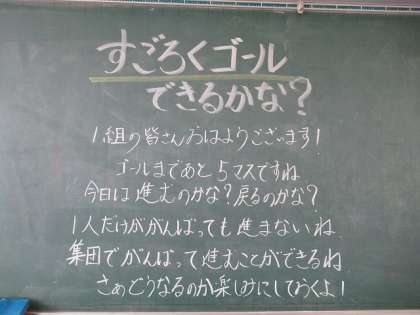 すごろくゴール
できるかな?
1組の皆さんおはようございます!
ゴールまであと5マスですね
今日は進むのかな?戻るのかな?
1人だけががんばっても進まないね
集団でがんばって進むことができるね
さぁどうなるのか楽しみにしておくよ!